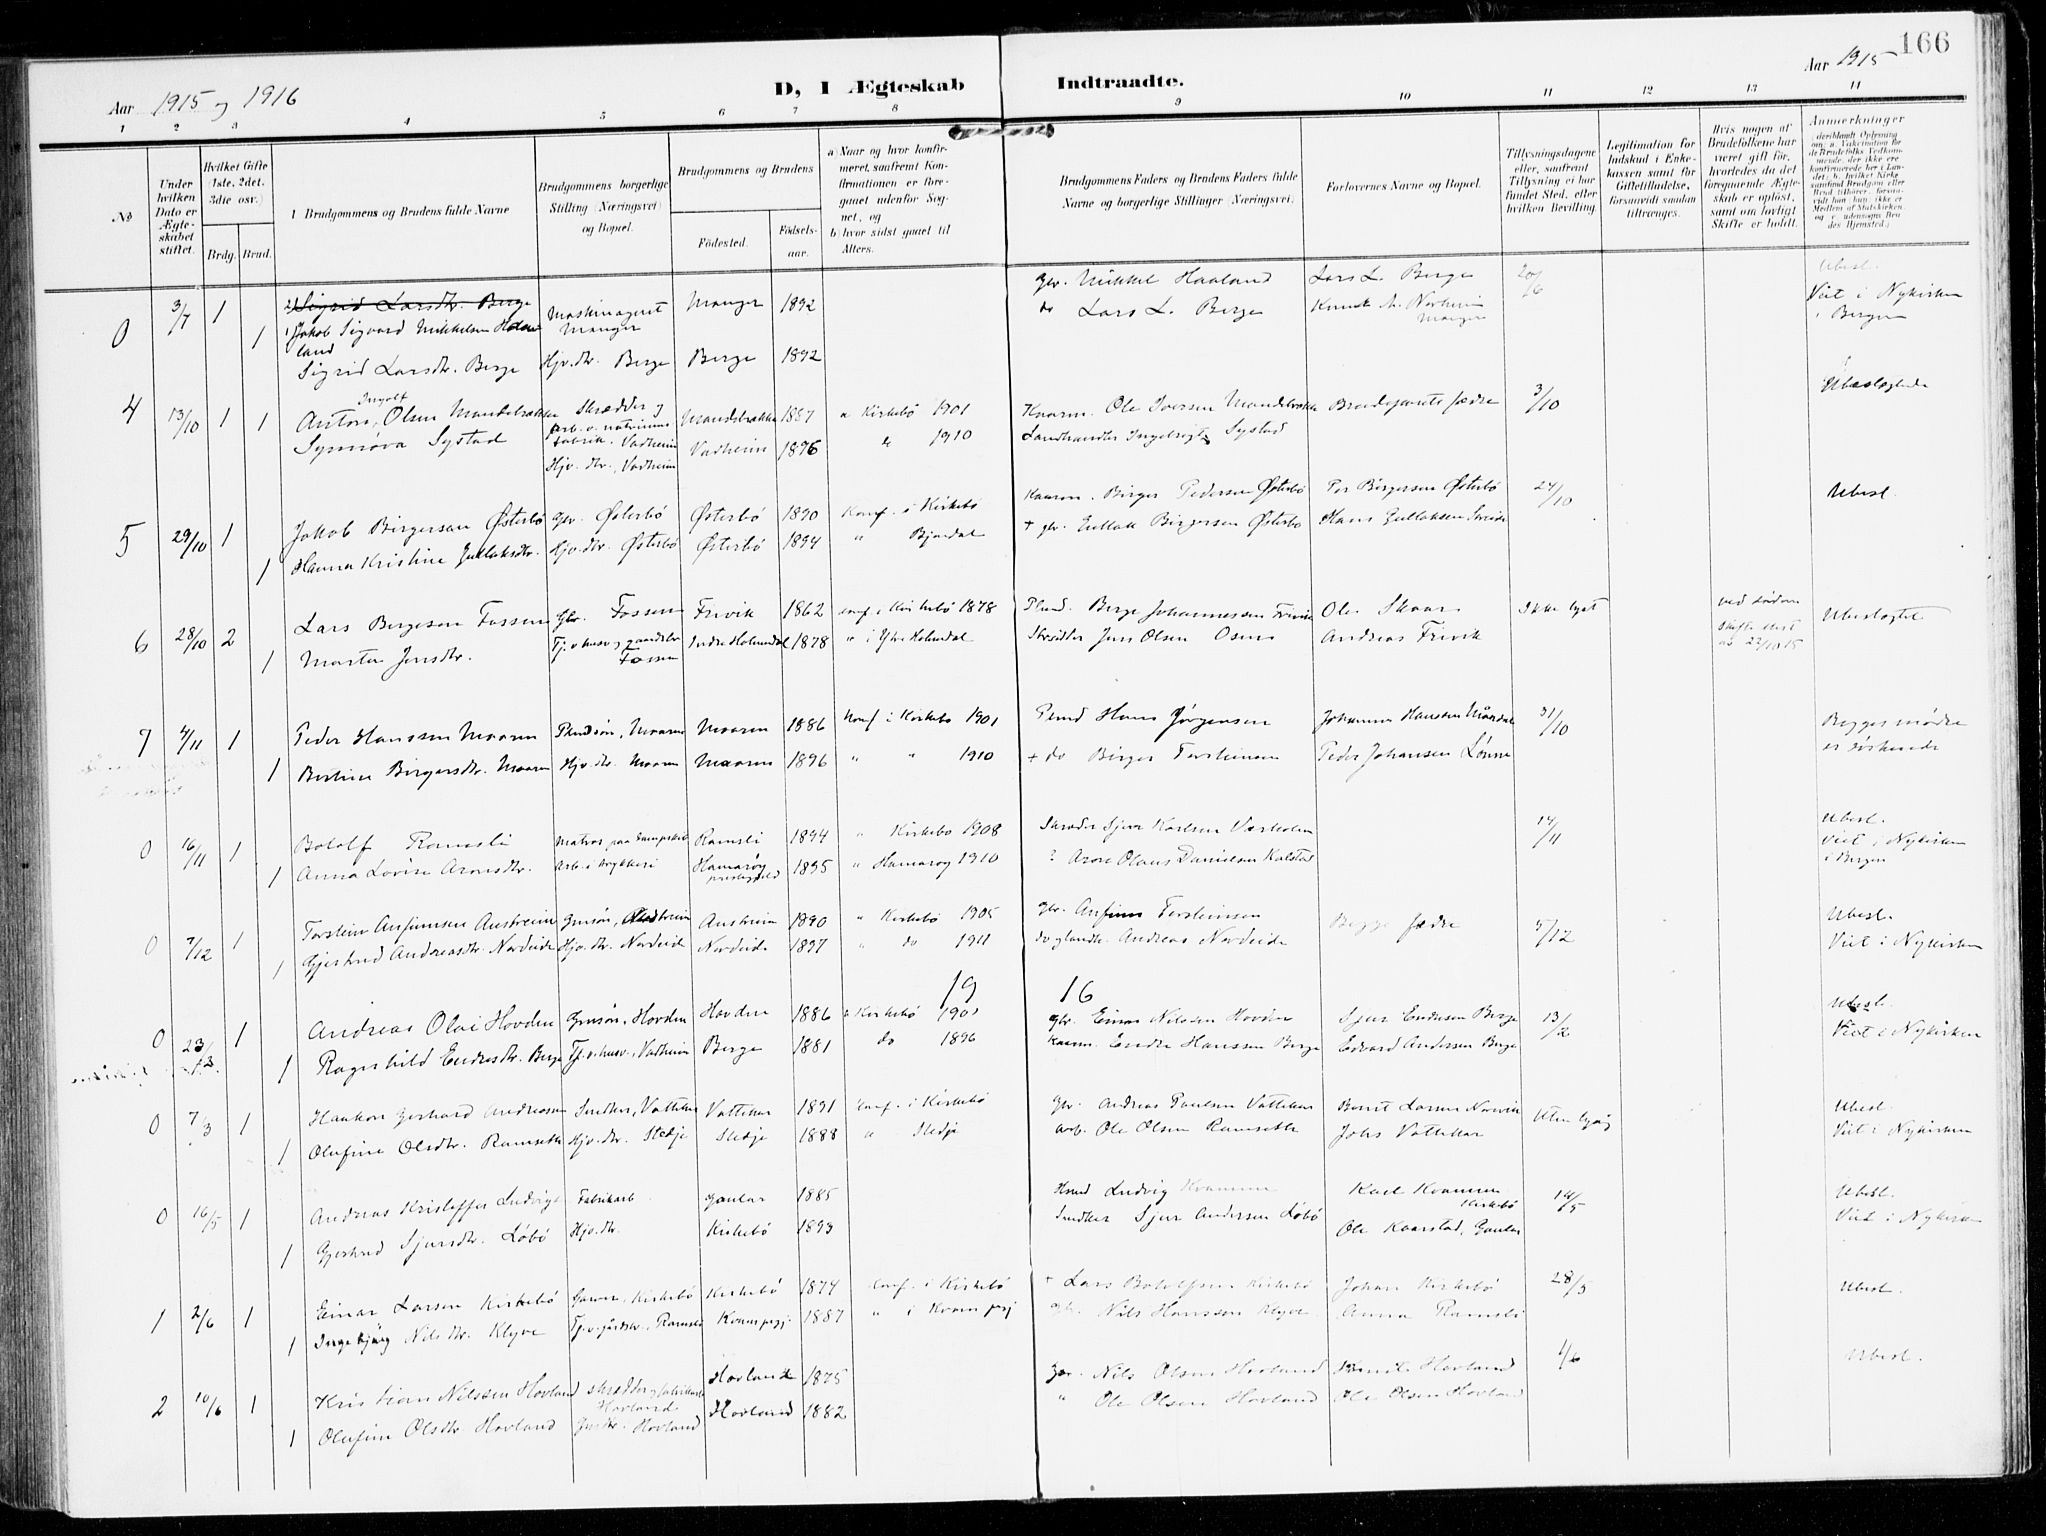 166
Aar 1915 og 1916
D, I Ægteskab Indtraadte.
Aar 1915
1 2 3 4 5 6 7 8 9 10 11 12 13 14
No
Under hvilken Dato er Ægteskabet stiftet.
Hvilket Gifte (1ste, 2det, 3dte osv.)
Brdg. Brud.
1 Brudgommens og Brudens fulde Navne
Brudgommens borgerlige Stilling (Næringsvei) og Bopæl.
Brudgommens og Brudens
Fødested. Fødselsaar.
a) Naar og hvor konfirmeret, saafremt Konfirmationen er foregaaet udenfor Sognet, og
b) hvor sidst gaaet til Alters.
Brudgommens Faders og Brudens Faders fulde Navne og borgerlige Stillinger (Næringsvei)
Forlovernes Navne og Bopæl.
Tillysningsdagene eller, saafremt Tillysning ei har fundet Sted, efter hvilken Bevilling
Legitimation for Indskud i Enkekassen samt for Giftetilladelse, forsaavidt saadan tiltrænges.
Hvis nogen af Brudefolkene har været gift før, hvorledes da det foregaaende Ægteskab er opløst, samt om lovligt Skifte er holdt.
Anmerkninger
0 3/7 1 2) Sigrid Larsdtr. Berge
1) Jakob Sigvard Mikkelsen Haaland Maskinagent Manger Manger 1892 Gbr. Mikkel Haaland Lars L. Berge 20/6 Ubesl.
1 Sigrid Larsdtr. Berge Hjv.dtr. Berge Berge 1892 do Lars L. Berge Knut M. Norheim Manger Viet i Nykirken i Bergen
4 13/10 1 Anton Ingolf Olsen Mandsbakke Skrædder og arb. v. natriumfabrik. Vadheim Mandsbakke 1887 a Kirkebö 1901 Kaarm. Ole Iversen Mandsbakke Brudeparets fædre 3/10 Ubeslægtede
1 Synnöva Systad Hjv. dtr., Vadheim Vadheim 1896 " 1910 Landhandler Ingebrigt Systad
5 29/10 1 Jakob Birgersen Österbö Gbr. Österbö Österbö 1890 Konf. i Kirkebö Kaarm. Birger Pedersen Österbö Per Birgersen Österbö 24/10 Ubesl.
1 Hanna Kristine Gullaksdtr. Hjv.dtr. Österbö Österbö 1894 " Bjordal + gbr. Gullak Birgersen Österbö Hans Gullaksen
6 28/10 2 Lars Bergesen Fossen Gbr. Fossen Frivik 1862 Konf. i Kirkebö 1878 Plmd. Berge Johannessen Frivik Ole Skaar Ikke lyst ved döden Ubeslegtet
1 Marta Jensdtr. Tj. v. hus og gaardsbr Fossen Indre Holmedal 1878 " i Ytre Holmedal Skrædder Jens Olsen Osen Andreas Frivik 22/10 15
7 4/11 1 Peder Hanssen Maaren Plmdsön, Maaren Maaren 1886 Konf. i Kirkebö 1901 Plmd Hans Jörgensen Johannes Hanssen 31/10 Begges mödre
1 Bertine Birgersdtr. Maaren Hjv.dtr. Maaren Maaren 1896 " " 1910 + do Birger Torsteinsen Peder Johansen Lönne er söskende
0 16/11 1 Botolf Ramsli Matros paa dampskib Ramsli 1894 " Kirkebö 1908 Skræder Sjur Karlsen Værholm 14/11 Ubesl.
1 Anna Lovise Aronsdtr. Arb. i trykkeri Hamarøy præstegjeld 1895 " Hamarøy 1910 ? Aron Olaus Danielsen Kalstad Viet i Nykirken i Bergen
0 7/12 1 Torstein Anfinnsen Austreim Gmsön, Austreim Austreim 1890 " Kirkebö 1905 gbr. Anfinn Torsteinsen Begge fædre 5/12 Ubesl.
1 Gjertrud Andreasdtr. Nordeide Hjv.dtr. Nordeide Nordeide 1897 " do 1911 do Andreas Nordeide Viet i Nykirken
19 16
0 23/2 1 Andreas Olai Hovden Gmsön, Hovden Hovden 1886 a Kirkebö 1901 gbr. Einar Nilssen Hovden Sjur Endresen Berge 13/2 Ubesl.
1 Ragnhild Endresdtr. Berge Tj. v. husv., Vadheim Berge 1881 do 1896 Kaarm. Endre Hanssen Berge Edvard Andersen Berge Viet i Nykirken
0 7/3 1 Haakon Gerhard Andreassen Snedker, Vattekar Vattekar 1891 Konf. i Kirkebö Gbr. Andreas Paulsen Vattekar Berret Larsen Uten lysing Ubesl.
1 Olufine Olsdtr. Ramseth Hjv.dtr. Stedje Stedje 1888 " Stedje Arb. Ole Olsen Ramseth Johs Vattekar Viet i Nykirken
0 16/5 1 Andreas Kristoffer Ludvigs Fabrikarb. Gaular 1885 Ludvig Kvammen Karl Kvammen Kirkebö 14/5 Ubesl.
1 Gjertrud Sjursdtr. Löbö Hjv.dtr. Kirkebö 1893 Snedker Sjur Andersen Löbö Ole Kaarstad, Gaular Viet i Nykirken
1 2/6 1 Einar Larsen Kirkebö Garver, Kirkebö Kirkebö 1874 Konf. i Kirkebö + Lars Botolfsen Kirkebö Johan Kirkebö 28/5 Ubesl.
1 Ingebjörg Nilsdtr. Klyve Ramsli Kvams pgj. 1887 " i Kvam pgj Gbr. Nils Hansson Klyve Anna Ramsli
2 10/6 1 Kristian Nilssen Hovland skrædder og fabrikarb. Hovland Hovland 1875 Gbr. Nils Olsen Hovland Hovland 4/6 Ubesl.
1 Olufine Olsdtr Hovland Hovland Hovland 1882 " Ole Olsen Hovland Ole Olsen Hovland